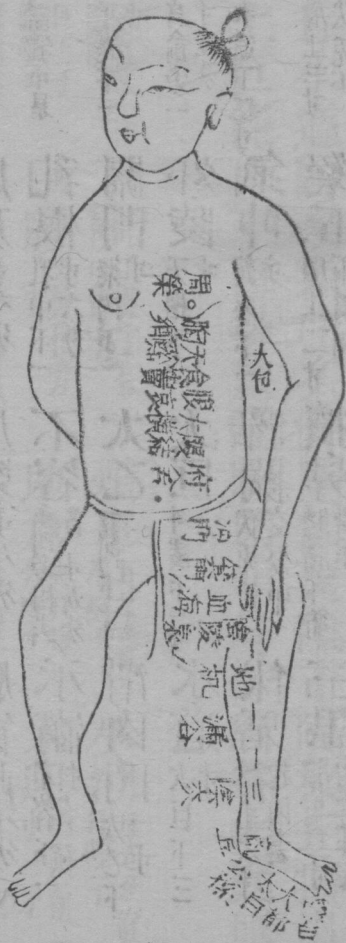 周榮
胸鄉
天谿
食竇
腹哀
大橫
腹結
府舍
大包
冲門
箕門
血海
陰陵泉
地机
漏谷
三陰交
商丘
公孫
太白
大都
白